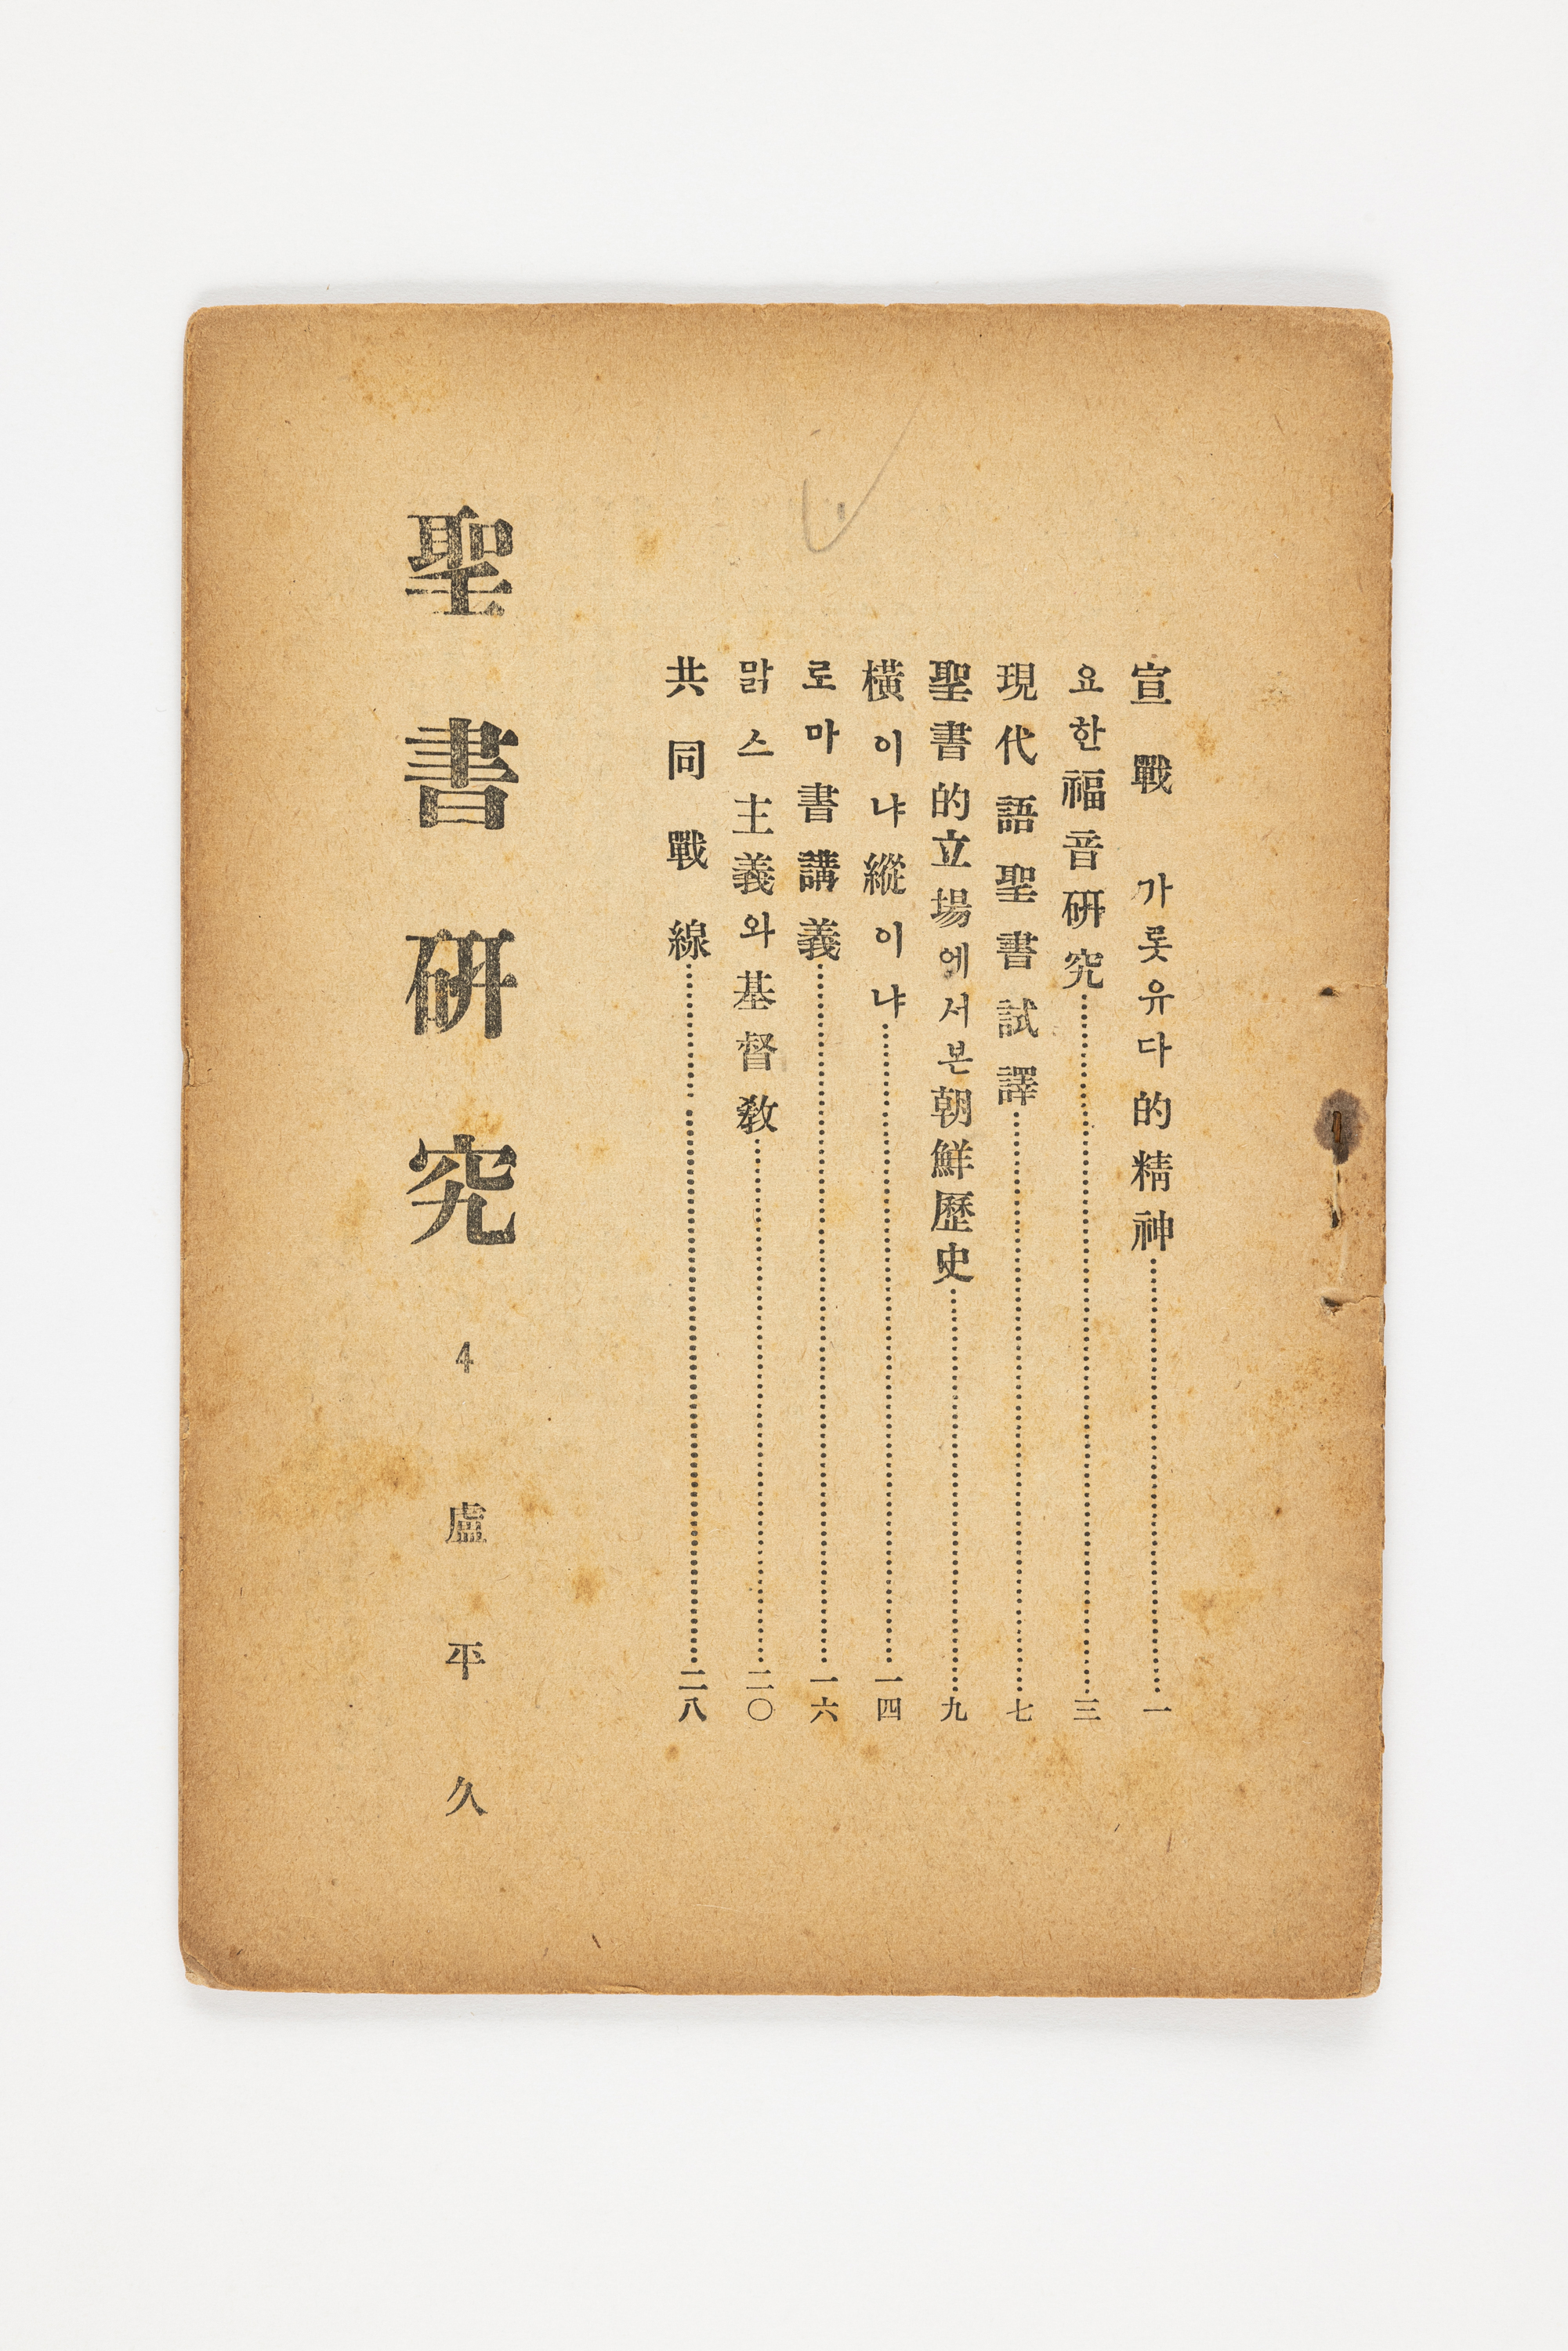 宣戰 가롯유다的精神……一
요한福音硏究……三
現代語聖書試譯……七
聖書的立場에서본朝鮮歷史……九
橫이냐縱이냐……一四
로마書講義……一六
맑스主義와基督敎……二〇
共同戰線……二八
聖書硏究 4 盧平久